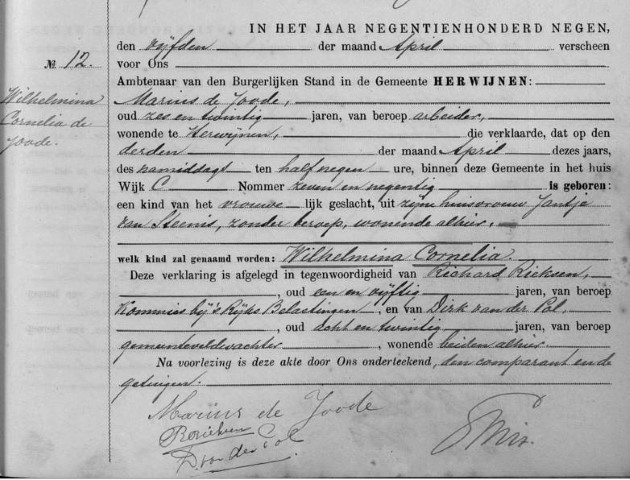 IN HET JAAR NEGENTIENHONDERD NEGEN,
den vijfden der maand April verscheen
№ 12.
voor Ons
Ambtenaar van den Burgerlijken Stand in de Gemeente HERWIJNEN:
Wilhelmina
Cornelia de
Joode.
Marinus de Joode,
oud zes en twintig jaren, van beroep arbeider,
wonende te Herwijnen, die verklaarde, dat op den
derden der maand April dezes jaars,
des namiddags ten half negen ure, binnen deze Gemeente in het huis
Wijk C Nommer zeven en negentig is geboren:
een kind van het vrouwe lijk geslacht, uit zijn huisvrouw Jantje
van Steenis, zonder beroep, wonende alhier.
welk kind zal genaamd worden: Wilhelmina Cornelia.
Deze verklaring is afgelegd in tegenwoordigheid van Richard Rieksen,
, oud een en vijftig jaren, van beroep
Kommies bij 's Rijks Belastingen, en van Dirk van der Pol,
, oud acht en twintig jaren, van beroep
gemeenteveldwachter, wonende beiden alhier.
Na voorlezing is deze akte door Ons onderteekend, den comparant en de
getuigen.
Marinus de Joode
Rieksen
D van der Pol